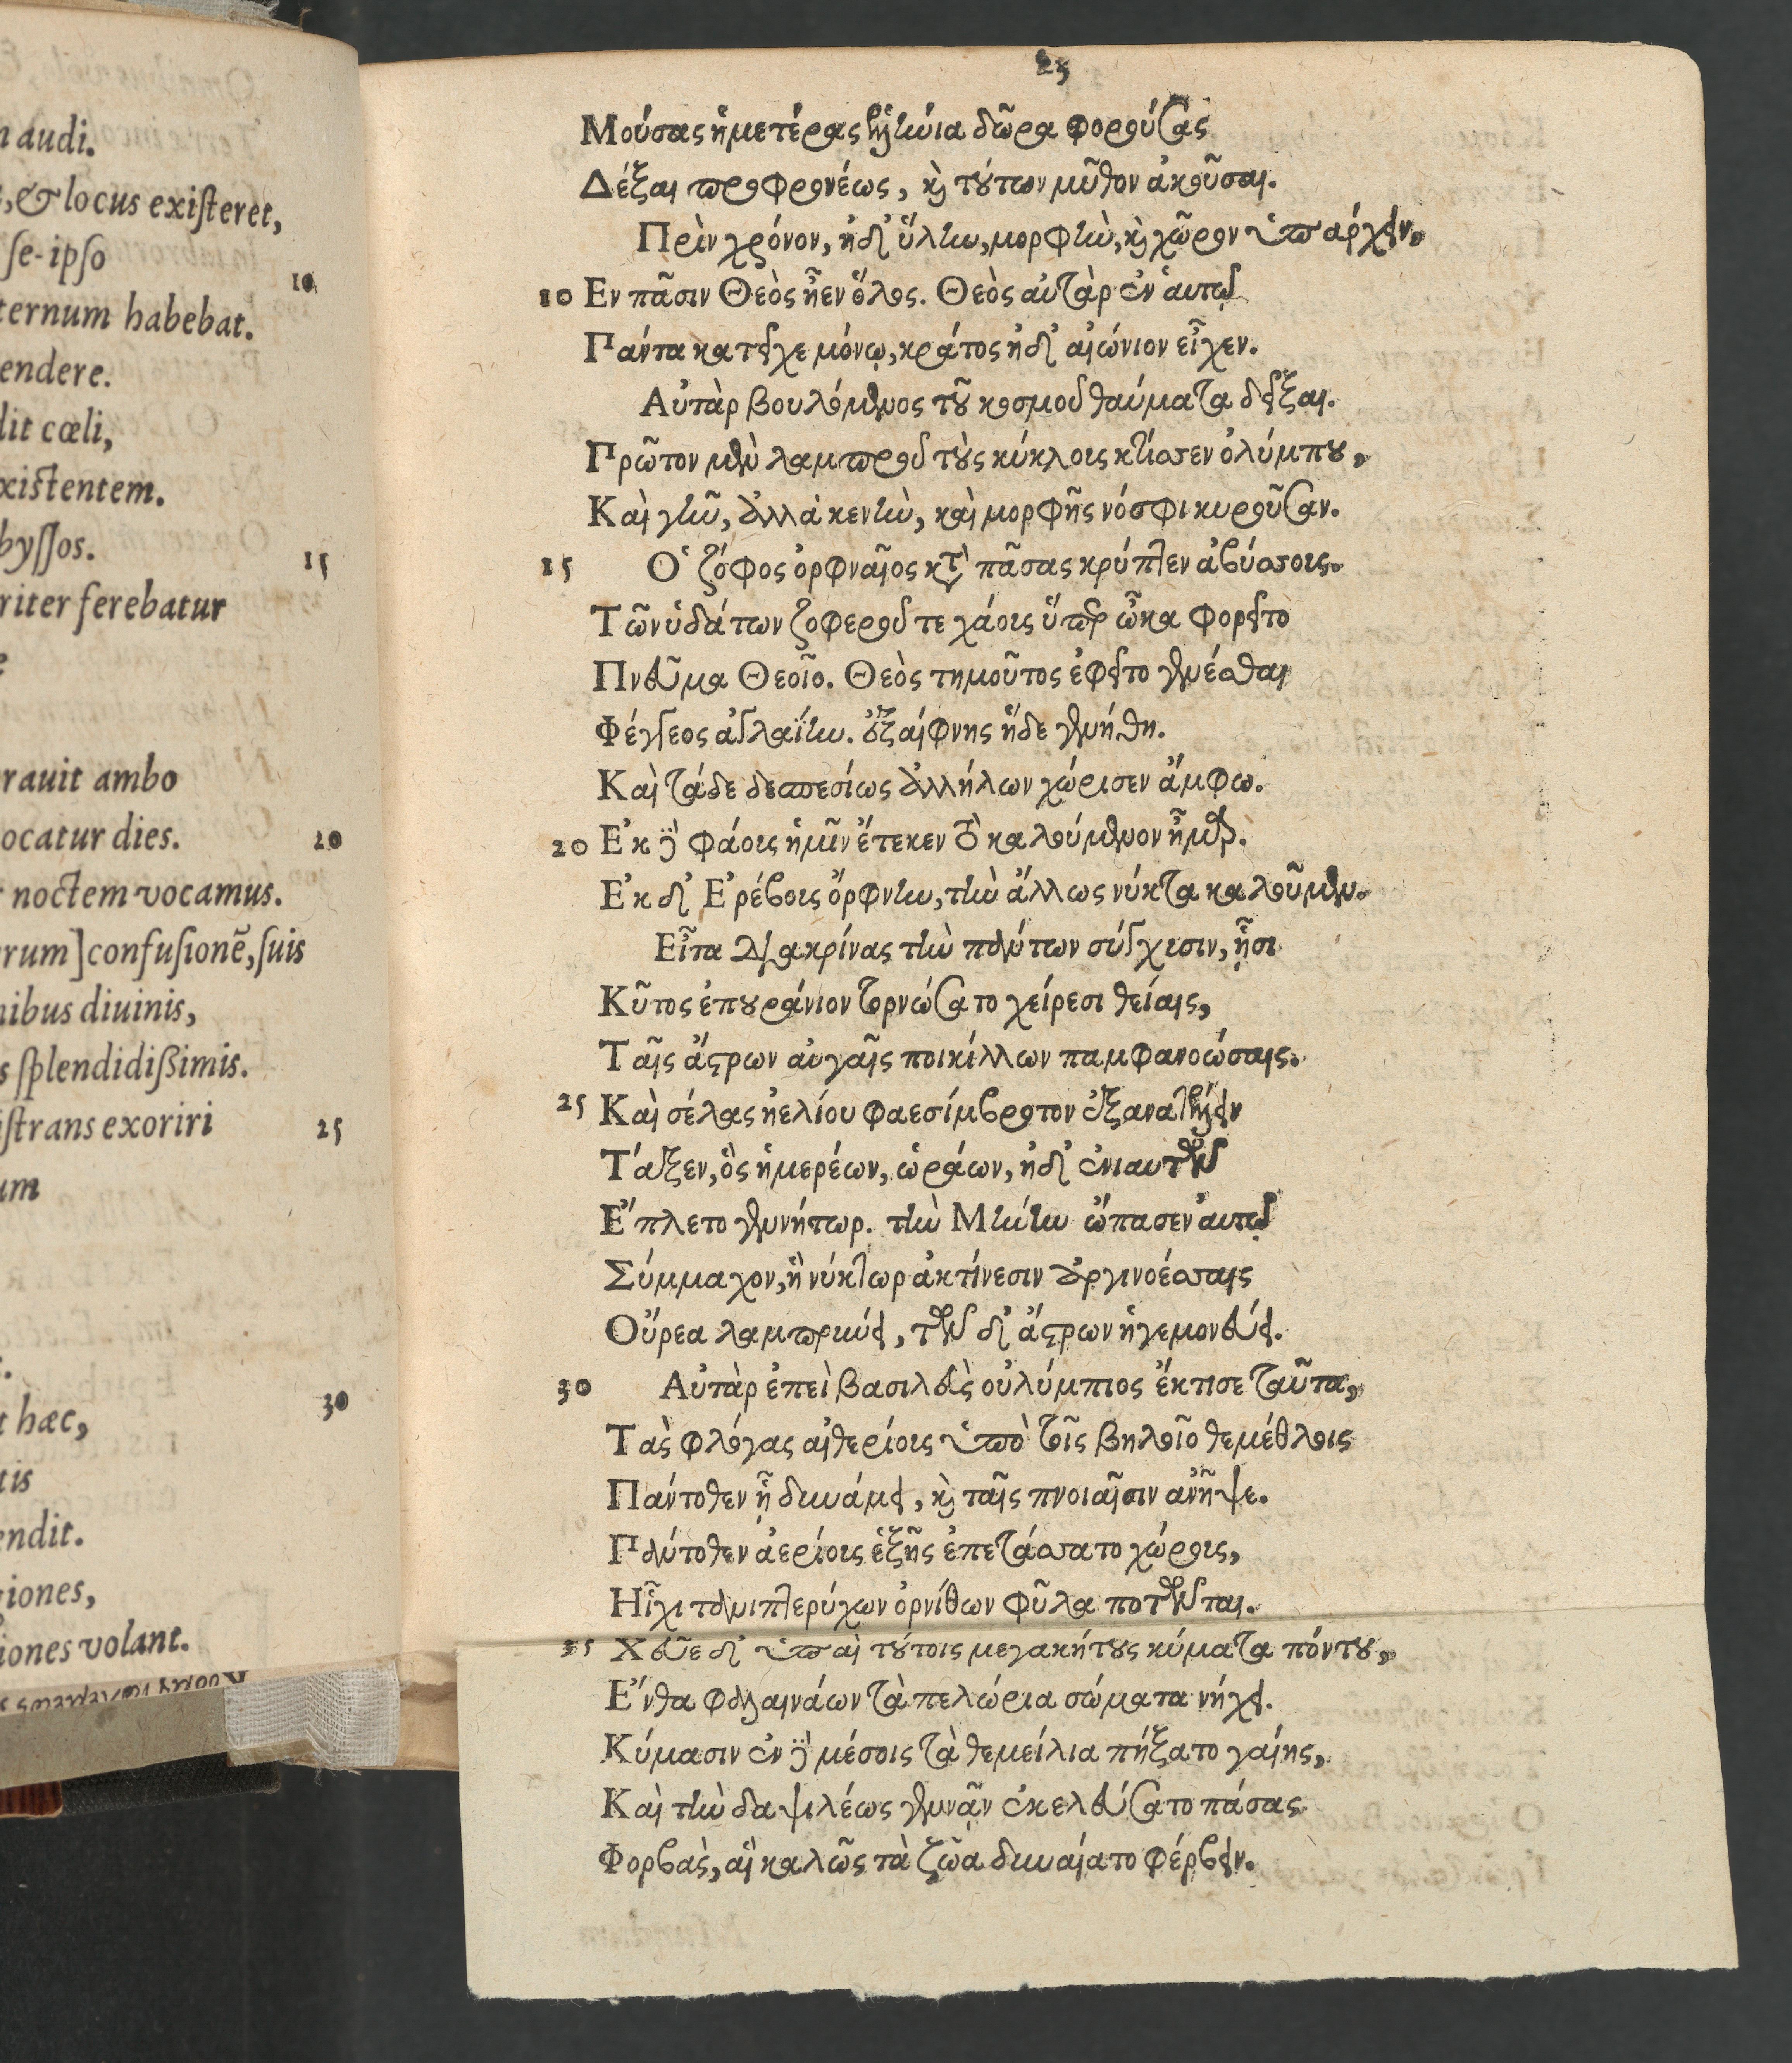 n audi.
, & locus existeret,
se-ipso
10
ternum habebat.
endere.
dit cœli,
xistentem.
byssos.
15
riter ferebatur
rauit ambo
ocatur dies.
20
noctem vocamus.
rum] confusionē, suis
nibus diuinis,
s splendidißimis.
istrans exoriri
25
um
hæc,
30
tis
endit.
giones,
iones volant.
25
Μούσας ἡμετέρας δῶρα φορούσας
Δέξαι προφρονέως, καὶ τούτων μῦθον ἀκοῦσαι.
Πρὶν χρόνον, ἠδ' ὕλην, μορφὴν, καὶ χῶρον ὑπάρχειν,
10 Εν πᾶσιν Θεὸς ἦεν ὅλος. Θεὸς αὐτὰρ ἐν ἁυτῷ
Πάντα κατεῖχε μόνῳ, κράτος ἠδ' αἰώνιον εἶχεν.
Αὐτὰρ βουλόμενος τοῦ κοσμου θαύματα δεῖξαι.
Πρῶτον μὲν λαμπροὺ τοὺς κύκλοις κτίσσεν ὀλύμπου,
Καὶ γῆν, ἀλλὰ κενὴν, καὶ μορφῆς νόσφι κυροῦσαν.
15 Ο' ζόφος ὀρφναῖος κατὰ πᾶσας κρύπτεν ἀβύσσοις.
Τῶν ὑδάτων ζοφεροῦ τε χάοις ὕπερ ὦκα φορεῖτο
Πνεῦμα Θεοῖο. Θεὸς τημοῦτος ἐφεῖτο γενέσθαι
Φέγγεος ἀγλαΐην. ἐξαίφνης ἥδε γενήθη.
Καὶ τάδε δεσπεσίως ἀλλήλων χώρισεν ἄμφω.
20 Ε'κ γὰρ φάοις ἡμῖν ἔτεκεν τὸ καλούμενον ἦμαρ.
Ε'κ δ' Ε'ρέβοις ὄρφνην, τὴν ἄλλως νύκτα καλοῦμεν.
Εἶτα διακρίνας τὴν πάντων σύγχισιν, ᾗσι
Κῦτος ἐπουράνιον τορνώσατο χείρεσι θείαις,
Ταῖς ἄστρων αὐγαῖς ποικίλλων παμφανοώσαις.
25 Καὶ σέλας ἠελίου φαεσίμβροτον ἐξανατέλλειν
Τάξεν, ὃς ἡμερέων, ὡράων, ἠδ' ἐνιαυτῶν
Ε'πλετο γεννήτωρ. τὴν Μήνην ὤπασεν ἁυτῷ
Σύμμαχον, ἣ νύκτωρ ἀκτίνεσιν ἀργινοέσσαις
Οὔρεα λαμπρύνει, τῶν δ' ἄστρων ἡγεμονεύει.
30 Αὐτὰρ ἐπεὶ βασιλεὺς οὐλύμπιος ἔκτισε ταῦτα,
Τὰς φλόγας αἰθερίοις ὑπὸ τοῖς βηλοῖο θεμέθλοις
Πάντοθεν ᾗ δυνάμει, καὶ ταῖς πνοιαῖσιν ἀνῆψε.
Πάντοθεν ἀερίοις ἑξῆς ἐπετάσσατο χώροις,
Ηἷχι τανυπτερύχων ὀρνίθων φῦλα ποτῶνται.
35 Χεῦε δ' ὑπαὶ τούτοις μεγακήτους κύματα πόντου,
Ε'νθα φαλαινάων τὰ πελώρια σώματα νήχει.
Κύμασιν ἐν γὰρ μέσοις τὰ θεμείλια πήξατο γαίης,
Καὶ τὴν δαψιλέως γεννᾷν ἐκελεύσατο πάσας
Φορβὰς, αἳ καλῶς τὰ ζῶα δυναίατο φέρβειν.